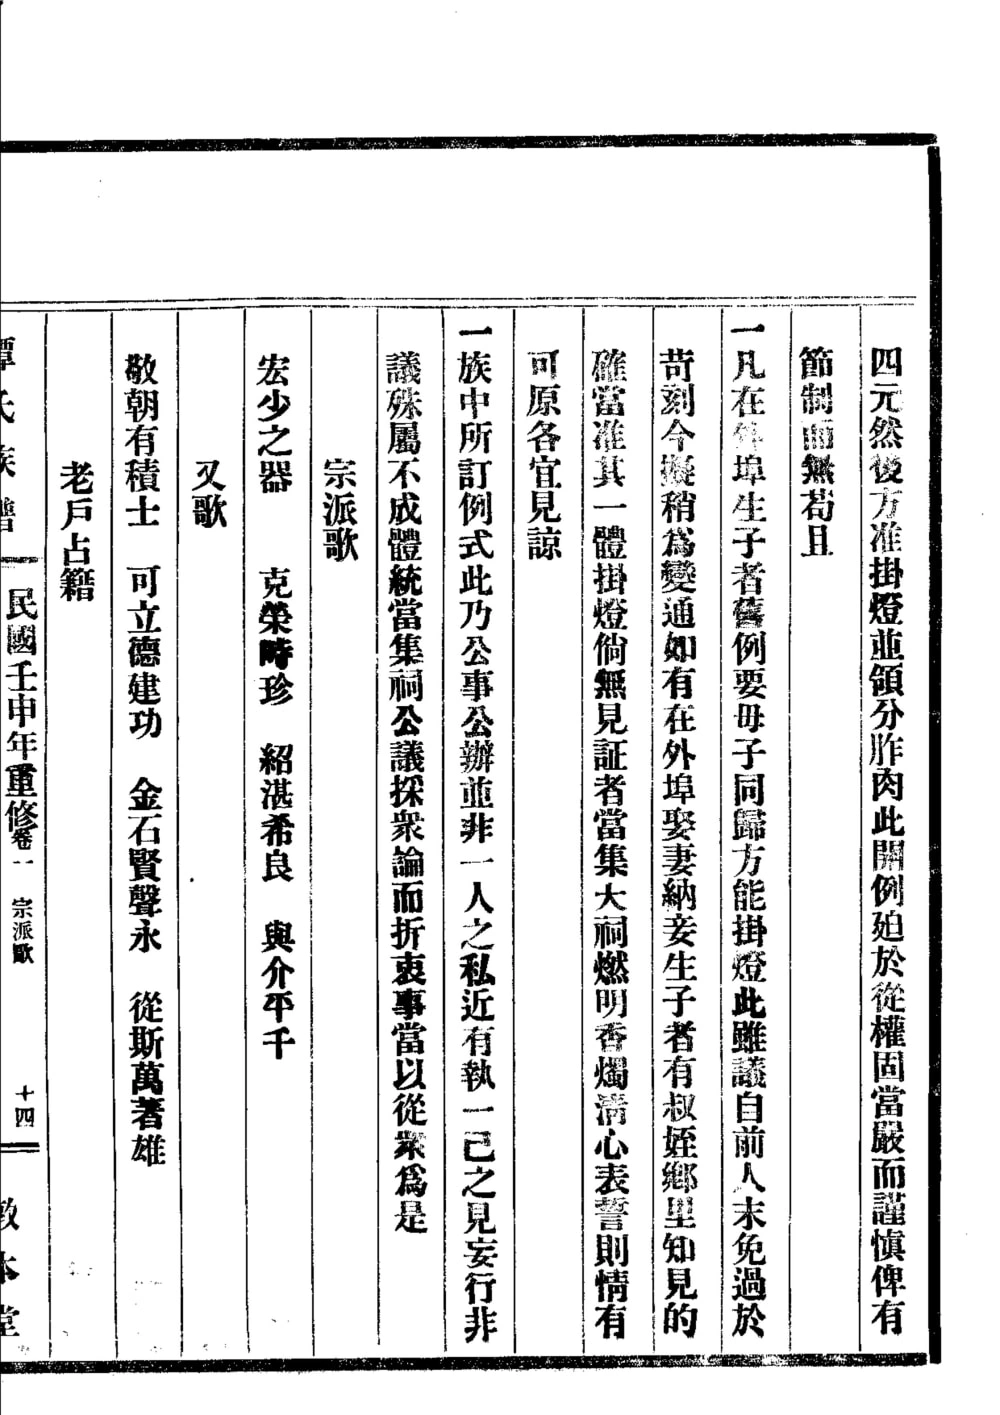 四元然後方准掛燈並領分胙肉此開例廹於從權固當嚴而謹慎俾有
節制而無苟且
一凡在外埠生子者舊例要毋子同歸方能掛燈此雖議自前人末免過於
苛刻今擬稍為變通如有在外埠娶妻納妾生子者有叔姪鄉里知見的
確當准其一體掛燈倘無見証者當集大祠燃明香燭清心表誓則情有
可原各宜見諒
一族中所訂例式此乃公事公辦並非一人之私近有執一己之見妄行非
議殊屬不成體統當集祠公議採衆論而折衷事當以從衆為是
宗派歌
宏少之器 克榮時珍 紹湛希良 與介平千
又歌
敬朝有積士 可立德建功 金石賢聲永 從斯萬著雄
老戶占籍
譚氏族譜 民國壬申年重修卷一 宗派歌 十四 敦本堂